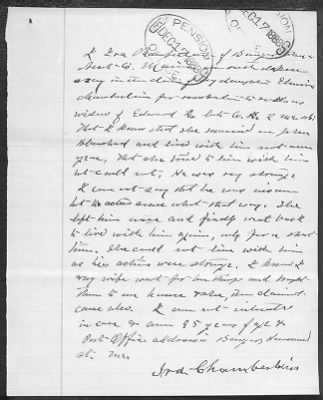 PENSION
DEC 17 1886
OFFICE
PENSION
DEC 17 1886
OFFICE
I Ira Chamberlain of Bangor
Co. Maine on oath depose
& say in the claim of my daughter Elmira
Chamberlain for as the
widow of Edward Co. 2 Me
That I know that she married on John
Blanchard and lived with him not one
year, that she tried to live with him
but could not, He was very strange
I can not say that he was insane
but he acted some what that way. She
left him once and finally went back
to live with him again, only for a short
time, She could not live with him
as his actions were strange, I know I &
my wife went for her things and brought
them to our house & she, the claimant
came also. I am not interested
in case & am 95 years of age &
Post Office address is Bangor,
st. Me
Ira Chamberlain